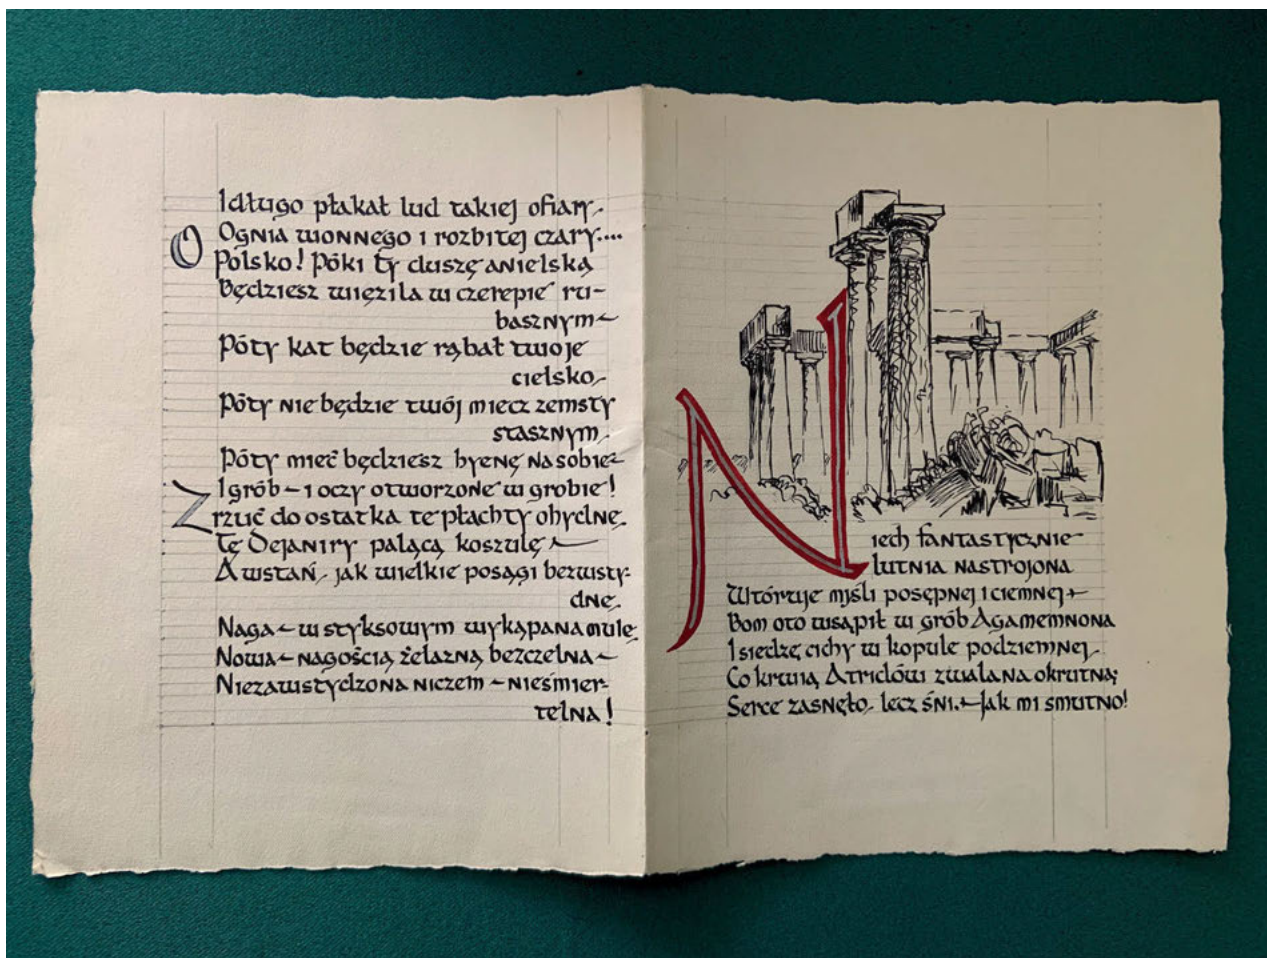 I długo płakał lud takiej ofiary,
Ognia wonnego i rozbitej czary....
O Polsko! Póki ty duszę anielską
Będziesz więzila w czerepie ru-
basznym —
Póty kat będzie rąbał twoje
cielsko,
Póty nie będzie twój miecz zemsty
stasznym,
Póty mieć będziesz hyenę na sobie —
I grób — i oczy otworzone w grobie!
Zrzuć do ostatka te płachty ohydne,
Tę Dejaniry palącą koszulę —
A wstań, jak wielkie posągi bezwsty-
dne,
Naga — w styksowym wykąpana mule,
Nowa — nagością żelazną bezczelna —
Niezawstydzona niczem — nieśmier-
telna!
Niech fantastycznie
lutnia nastrojona
Wtóruje myśli posępnej i ciemnej —
Bom oto wsąpił w grób Agamemnona
I siedzę cichy w kopule podziemnej,
Co krwią Atridów zwalana okrutną;
Serce zasnęło, lecz śni. — Jak mi smutno!